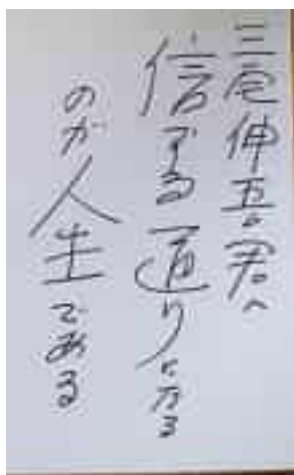 三宅伸吾君へ
信ずる通りになる
のが人生である